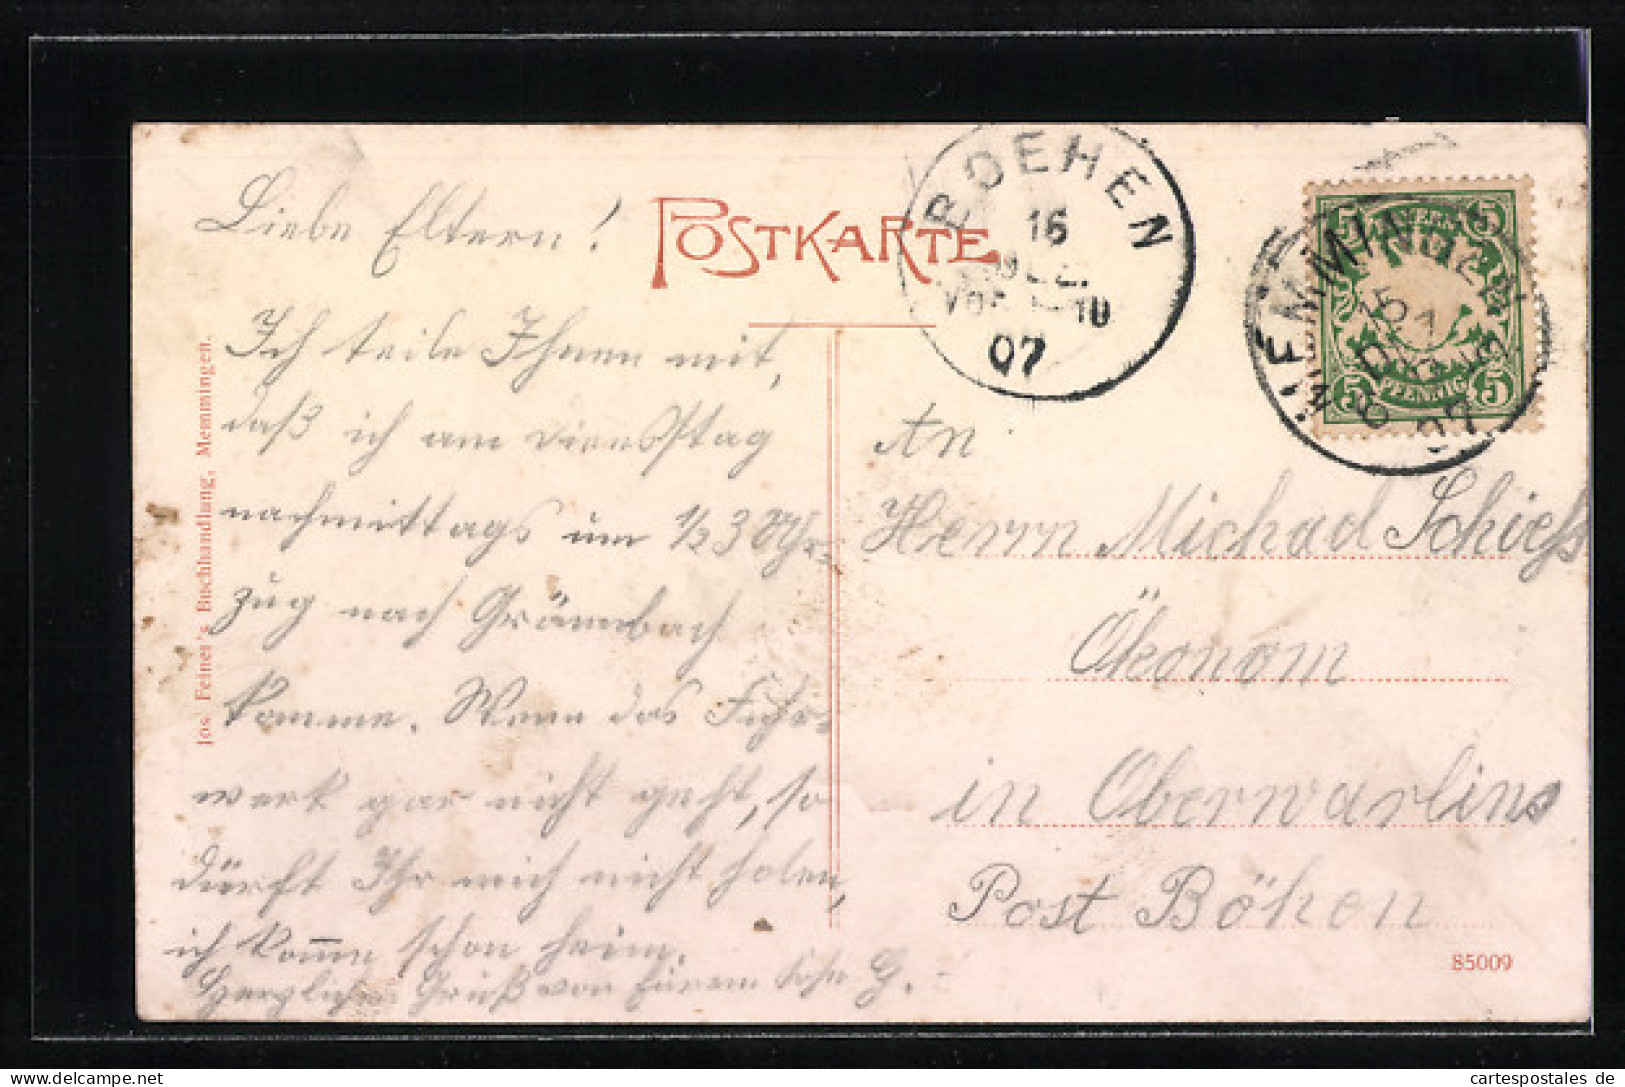 Liebe Eltern!
Ich teile Ihnen mit,
daß ich am Dienstag
nachmittags um ½ 3 Uhr-
zug nach Grönenbach
komme. Wenn das Fuhr-
werk gar nicht geht, so
dürft Ihr mich nicht holen,
ich komme schon heim.
Herzlichen Gruß von Eurem Sohn G.
Jos. Feiner's Buchhandlung, Memmingen.
POSTKARTE
BOEHEN
16
DEZ.
10
07
BAYERN
5 5
5 PFENNIG 5
MEMMINGEN
15
07
An
Herrn Michael Schieß
Ökonom
in Oberwarlins
Post Böhen
85009
delcampe.net
cartespostales de